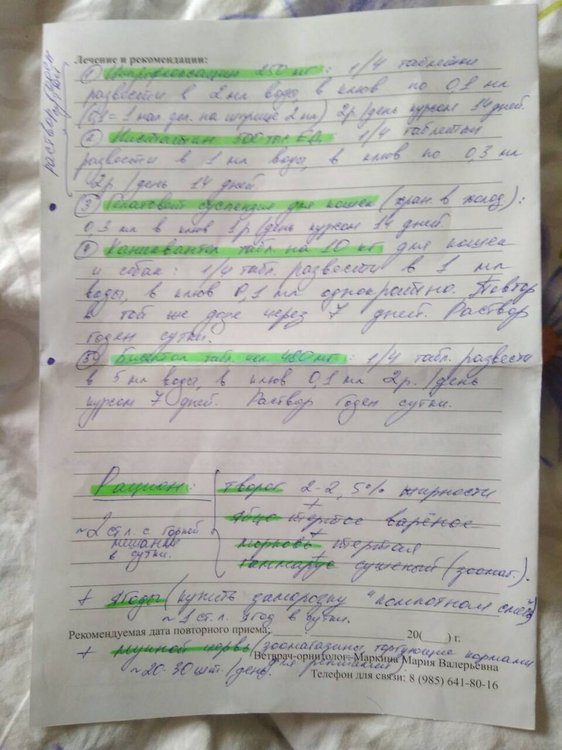 Лечение и рекомендации:
раствор годен сутки
① Ципрофлоксацин 250 мг: 1/4 таблетки
развести в 2 мл воды, в клюв по 0,1 мл
(0,1 = 1 мал. дел. на шприце 2 мл) 2р/день курсом 14 дней.
② Нистатин 500 тыс ЕД. 1/4 таблетки
развести в 1 мл воды, в клюв по 0,3 мл
2р/день 14 дней.
③ суспензия для кошек (хран. в холод):
0,3 мл в клюв 1р/день курсом 14 дней.
④ Каниквантел табл. на 10 кг для кошек
и собак: 1/4 табл. развести в 1 мл
воды, в клюв 0,1 мл однократно. Повтор
в той же дозе через 7 дней. Раствор
годен сутки.
⑤ табл. 480 мг: 1/4 табл. развести
в 5 мл воды, в клюв 0,1 мл 2р./день
курсом 7 дней. Раствор годен сутки.
Рацион:
~2 ст.л. с горкой
мешанки
в сутки.
творог 2-2,5% жирности
+
яйцо тертое варёное
+
морковь тертая
+
гаммарус сушеный (зоомаг.).
+ Ягоды (купить заморозку "компотная смесь")
~ 1 ст. л. ягод в сутки.
Рекомендуемая дата повторного приема: 20( ) г.
+ мучной червь (зоомагазины, торгующие кормами
для рептилий)
Ветврач-орнитолог: Маркина Мария Валерьевна
~20-30 шт/день.
Телефон для связи: 8 (985) 641-80-16